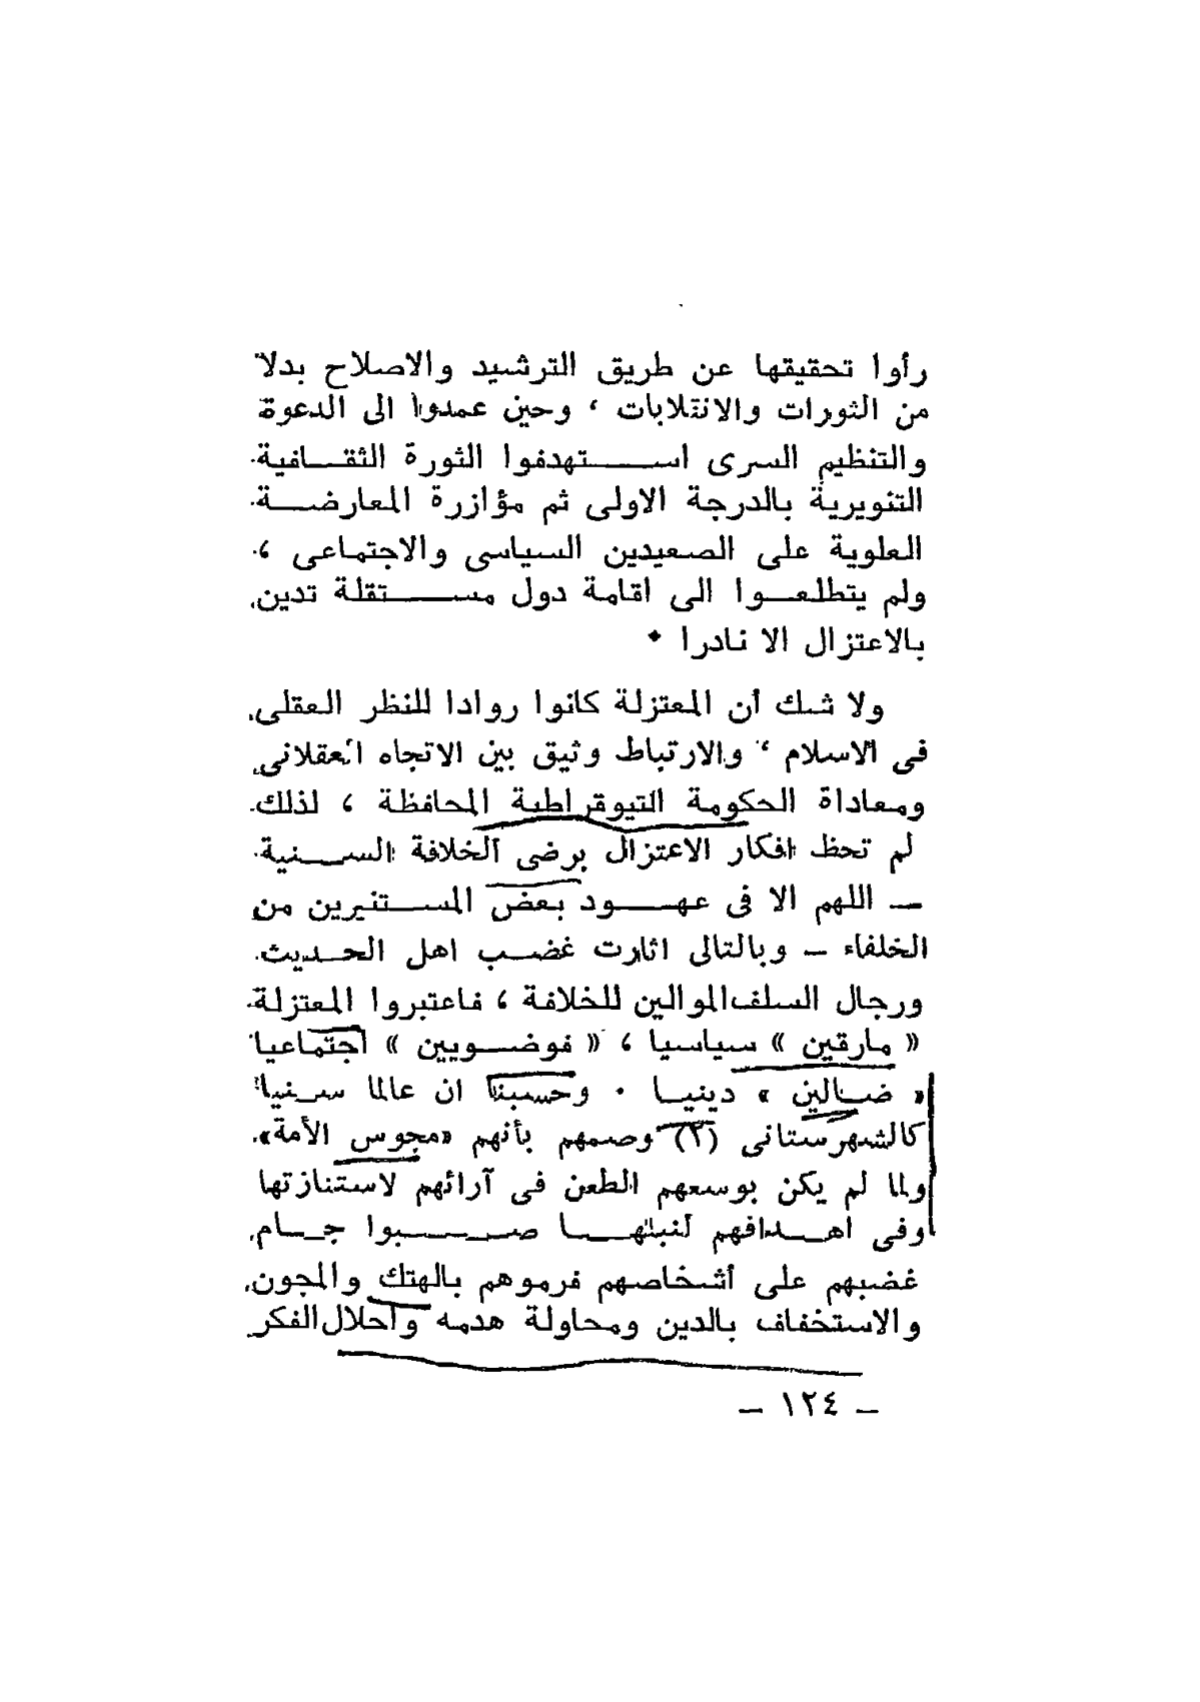 رأوا تحقيقها عن طريق الترشيد والاصلاح بدلا
من الثورات والانتقلابات ، وحين عمدوا الى الدعوة
والتنظيم السرى استهدفوا الثورة الثقافية
التنويرية بالدرجة الاولى ثم مؤازرة المعارضة
العلوية على الصعيدين السياسى والاجتماعى ،
ولم يتطلعوا الى اقامة دول مستقلة تدين
بالاعتزال الا نادرا ٠
ولا شك أن المعتزلة كانوا روادا للنظر العقلى
فى الاسلام ، والارتباط وثيق بين الاتجاه العقلانى
ومعاداة الحكومة التيوقراطية المحافظة ، لذلك
لم تحظ افكار الاعتزال برضى الخلافة السنية
ـ اللهم الا فى عهود بعض المستنيرين من
الخلفاء ـ وبالتالى اثارت غضب اهل الحديث
ورجال السلف الموالين للخلافة ، فاعتبروا المعتزلة
« مارقين » سياسيا ، « فوضويين » اجتماعيا
« ضالين » دينيا ٠ وحسبنا ان عالما سنيا
كالشهرستانى (٣) وصمهم بأنهم «مجوس الأمة»
ولما لم يكن بوسعهم الطعن فى آرائهم لاستنازتها
وفى اهدافهم لنبلها صبوا جام
غضبهم على أشخاصهم فرموهم بالهتك والمجون
والاستخفاف بالدين ومحاولة هدمه واحلال الفكر
ـ ١٢٤ ـ